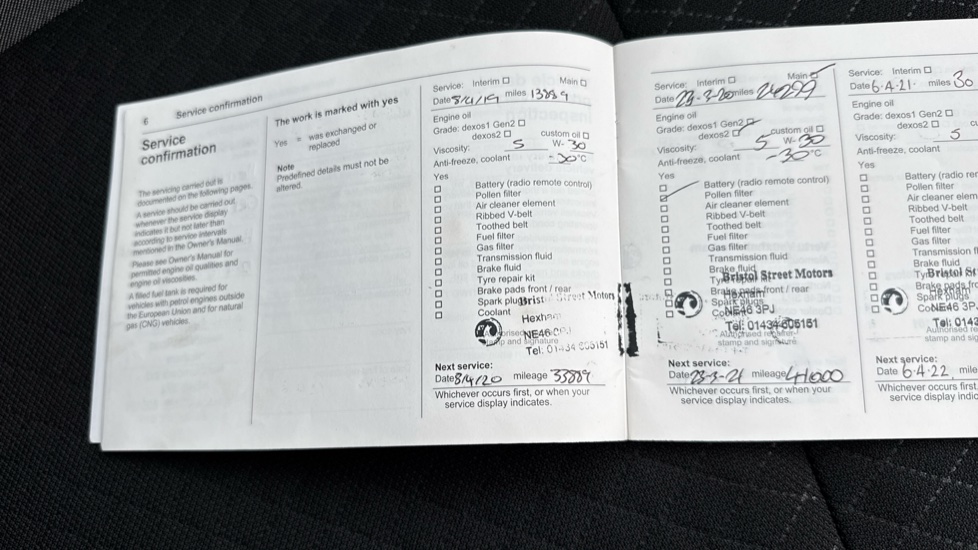 6 Service confirmation
Service
confirmation
The servicing carried out is
documented on the following pages.
A service should be carried out
whenever the service display
indicates it but not later than
according to service intervals
mentioned in the Owner's Manual.
Please see Owner's Manual for
permitted engine oil qualities and
engine oil viscosities.
A filled fuel tank is required for
vehicles with petrol engines outside
the European Union and for natural
gas (CNG) vehicles.
The work is marked with yes
Yes = was exchanged or
replaced
Note
Predefined details must not be
altered.
Service: Interim Main
Date 8/4/19 miles 13889
Engine oil
Grade: dexos1 Gen2
dexos2 custom oil
Viscosity: 5 W- 30
Anti-freeze, coolant -30°C
Yes
Battery (radio remote control)
Pollen filter
Air cleaner element
Ribbed V-belt
Toothed belt
Fuel filter
Gas filter
Transmission fluid
Brake fluid
Tyre repair kit
Brake pads front / rear
Spark plugs
Coolant
Bristol Street Motors
Hexham
NE46 3PJ
Tel: 01434 606161
stamp and signature
Next service:
Date 8/4/20 mileage 33889
Whichever occurs first, or when your
service display indicates.
Service: Interim Main
Date 23-3-20 miles 24299
Engine oil
Grade: dexos1 Gen2
dexos2 custom oil
Viscosity: 5 W-30
Anti-freeze, coolant -30°C
Yes
Battery (radio remote control)
Pollen filter
Air cleaner element
Ribbed V-belt
Toothed belt
Fuel filter
Gas filter
Transmission fluid
Brake fluid
Bristol Street Motors
Brake pads front / rear
Hexham
Spark plugs
NE46 3PJ
Tel: 01434 606161
Authorised repairer
stamp and signature
Next service:
Date 23-3-21 mileage 41000
Whichever occurs first, or when your
service display indicates.
Service: Interim
Date 6.4.21. miles 30
Engine oil
Grade: dexos1 Gen2
dexos2
Viscosity: 5
Anti-freeze, coolant
Yes
Battery (radio
Pollen filter
Air cleaner
Ribbed V-belt
Toothed belt
Fuel filter
Gas filter
Transmission
Brake fluid
Bristol St
Brake pads
Hexham
Spark plugs
NE46 3P
Tel: 0143
Authorised
stamp and
Next service:
Date 6.4.22
Whichever occurs first
service display